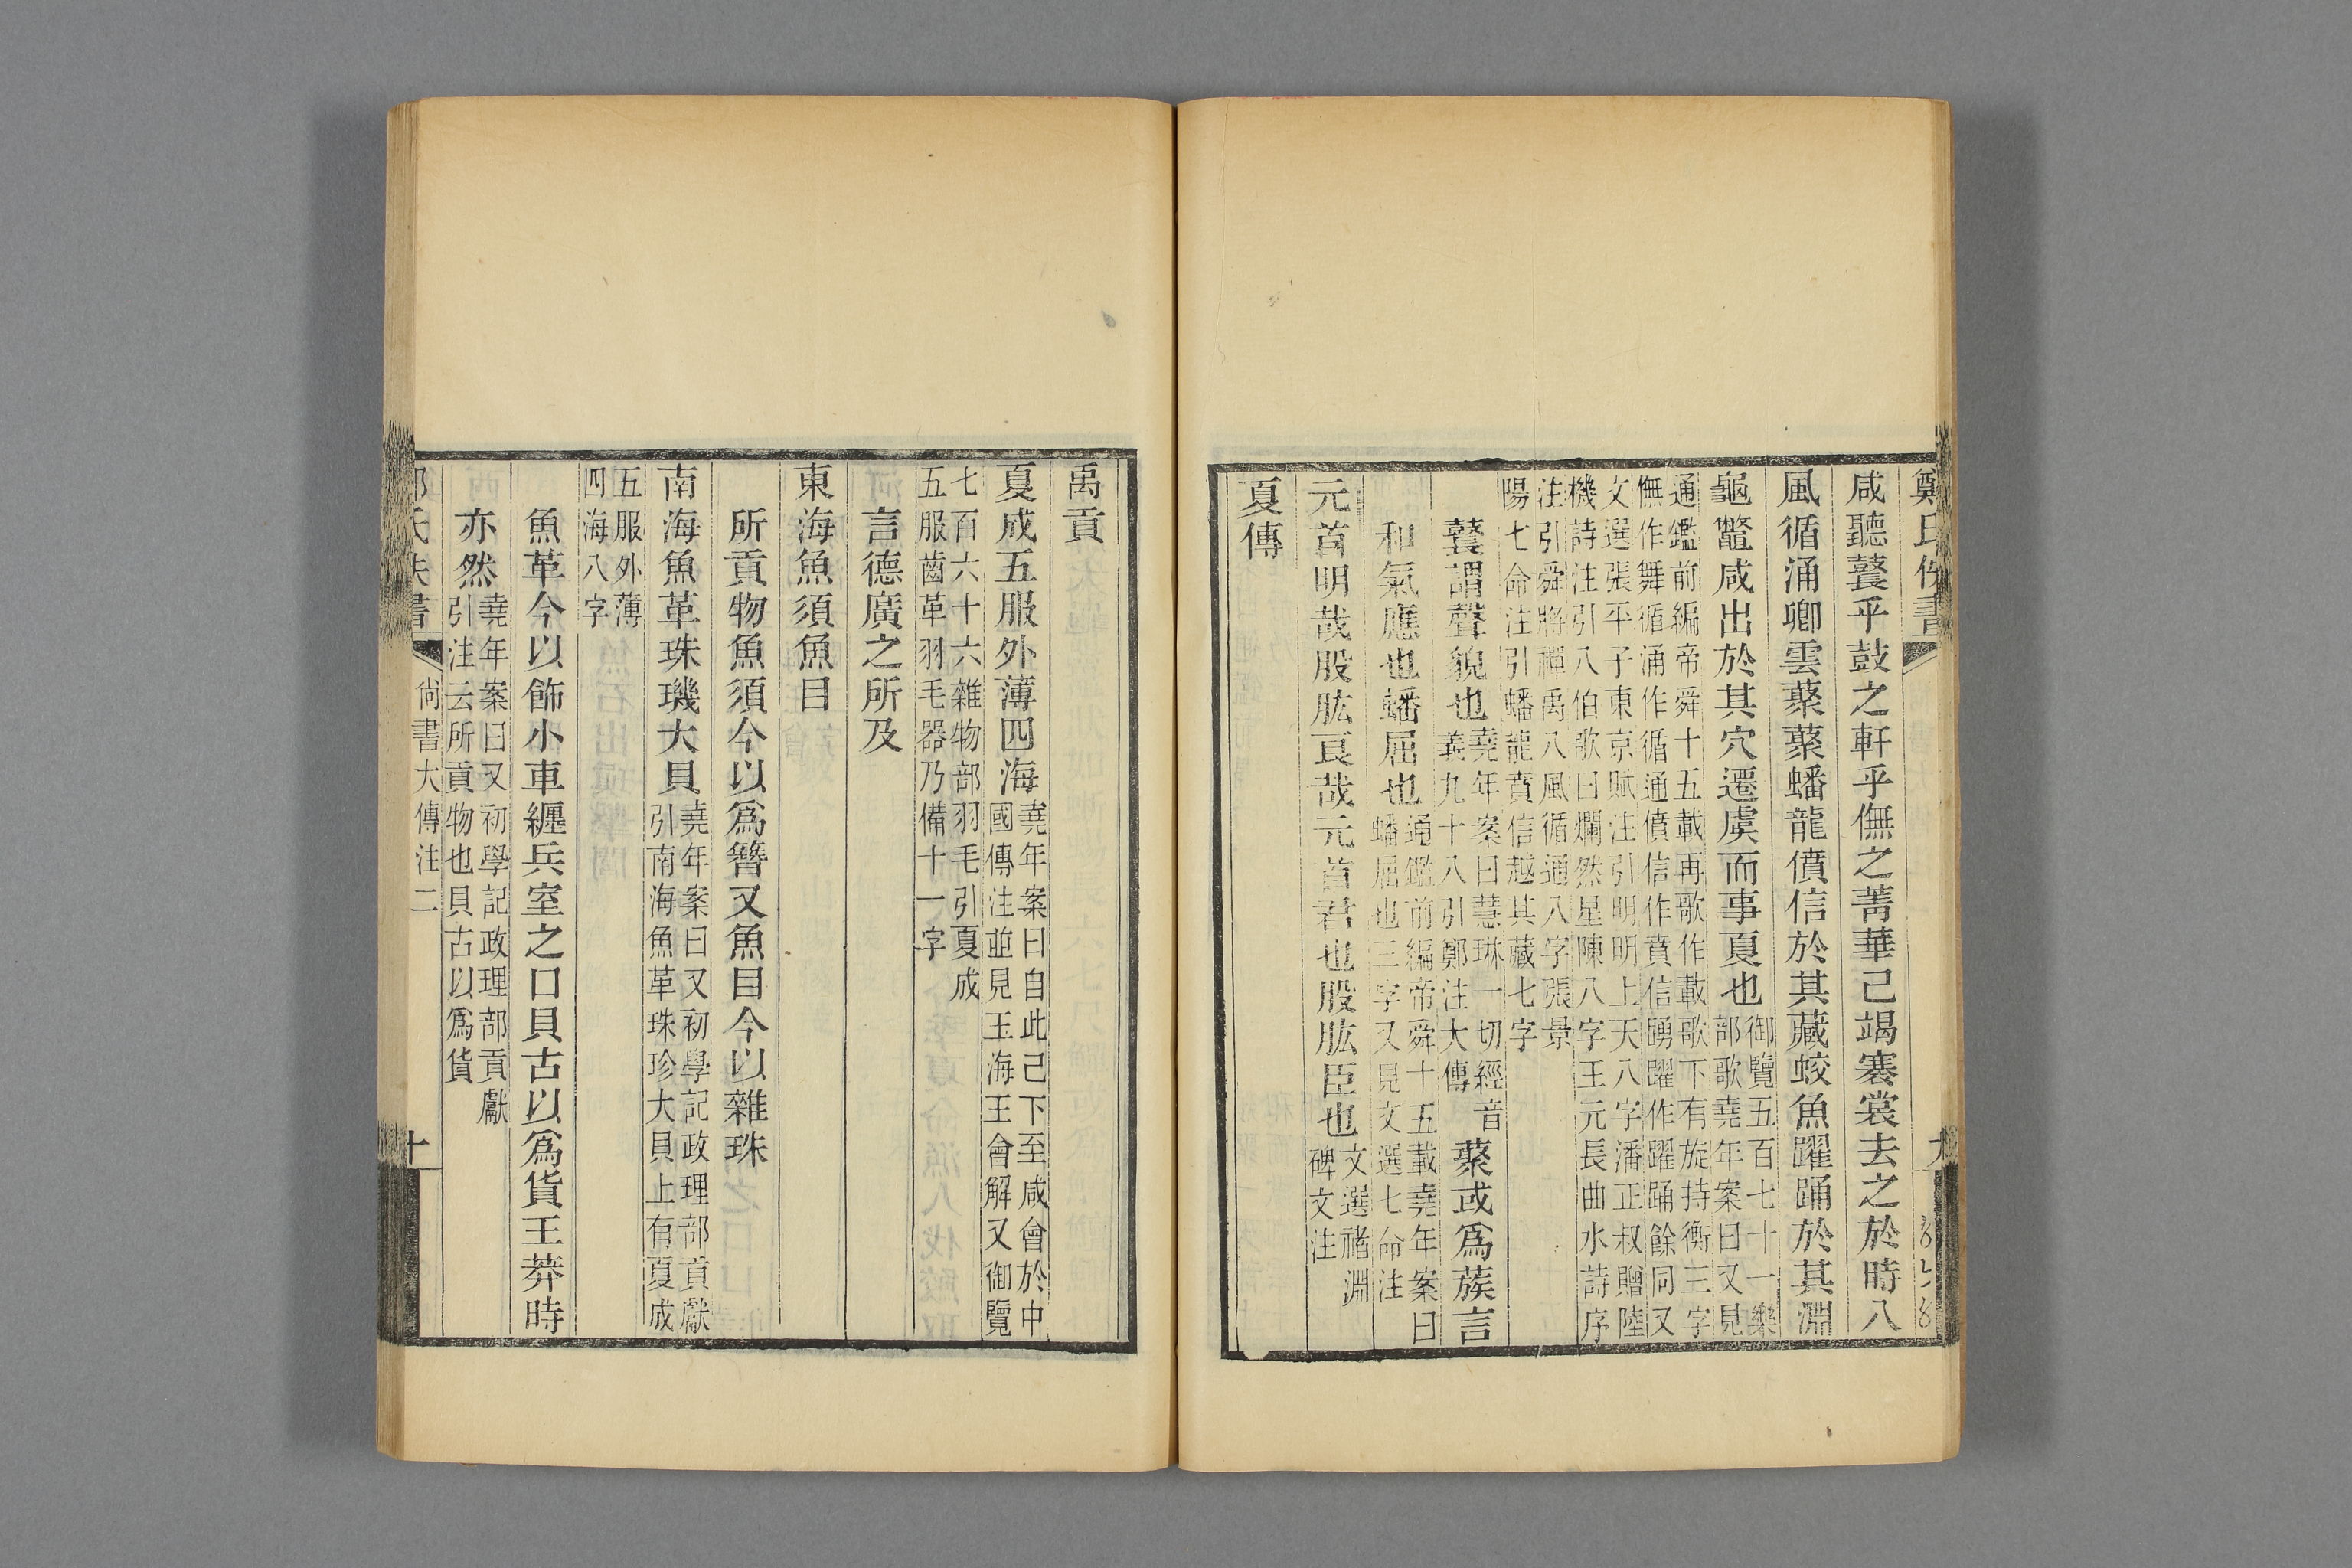 鄭氏佚書
咸聽鼚乎鼓之軒乎儛之菁華已竭褰裳去之於時八
風循涌卿雲蘩蘩蟠龍僨信於其藏蛟魚躍踊於其淵
龜鼈咸出於其穴遷虞而事夏也御覽五百七十一樂
部歌堯年案曰又見
通鑑前編帝舜十五載再歌作載歌下有旋持衡三字
儛作舞循涌作循通僨信作賁信踴躍作躍踊餘同又
文選張平子東京賦注引明明上天八字潘正叔贈陸
機詩注引八伯歌曰爛然星陳八字王元長曲水詩序
注引舜將禪禹八風循通八字張景
陽七命注引蟠龍賁信越其藏七字
鼚謂聲貌也堯年案曰慧琳一切經音
義九十八引鄭注大傳
蘩或爲蔟言
和氣應也蟠屈也通鑑前編帝舜十五載堯年案曰
蟠屈也三字又見文選七命注
元首明哉股肱良哉元首君也股肱臣也文選褚淵
碑文注
夏傳
禹貢
夏成五服外薄四海堯年案曰自此已下至咸會於中
國傳注並見玉海王會解又御覽
七百六十六雜物部羽毛引夏成
五服齒革羽毛器乃備十一字
言德廣之所及
東海魚須魚目
所貢物魚須今以爲簪又魚目今以雜珠
南海魚革珠璣大貝堯年案曰又初學記政理部貢獻
引南海魚革珠珍大貝上有夏成
五服外薄
四海八字
魚革今以飾小車纏兵室之口貝古以爲貨王莽時
亦然堯年案曰又初學記政理部貢獻
引注云所貢物也貝古以爲貨
尙書大傳注二
十